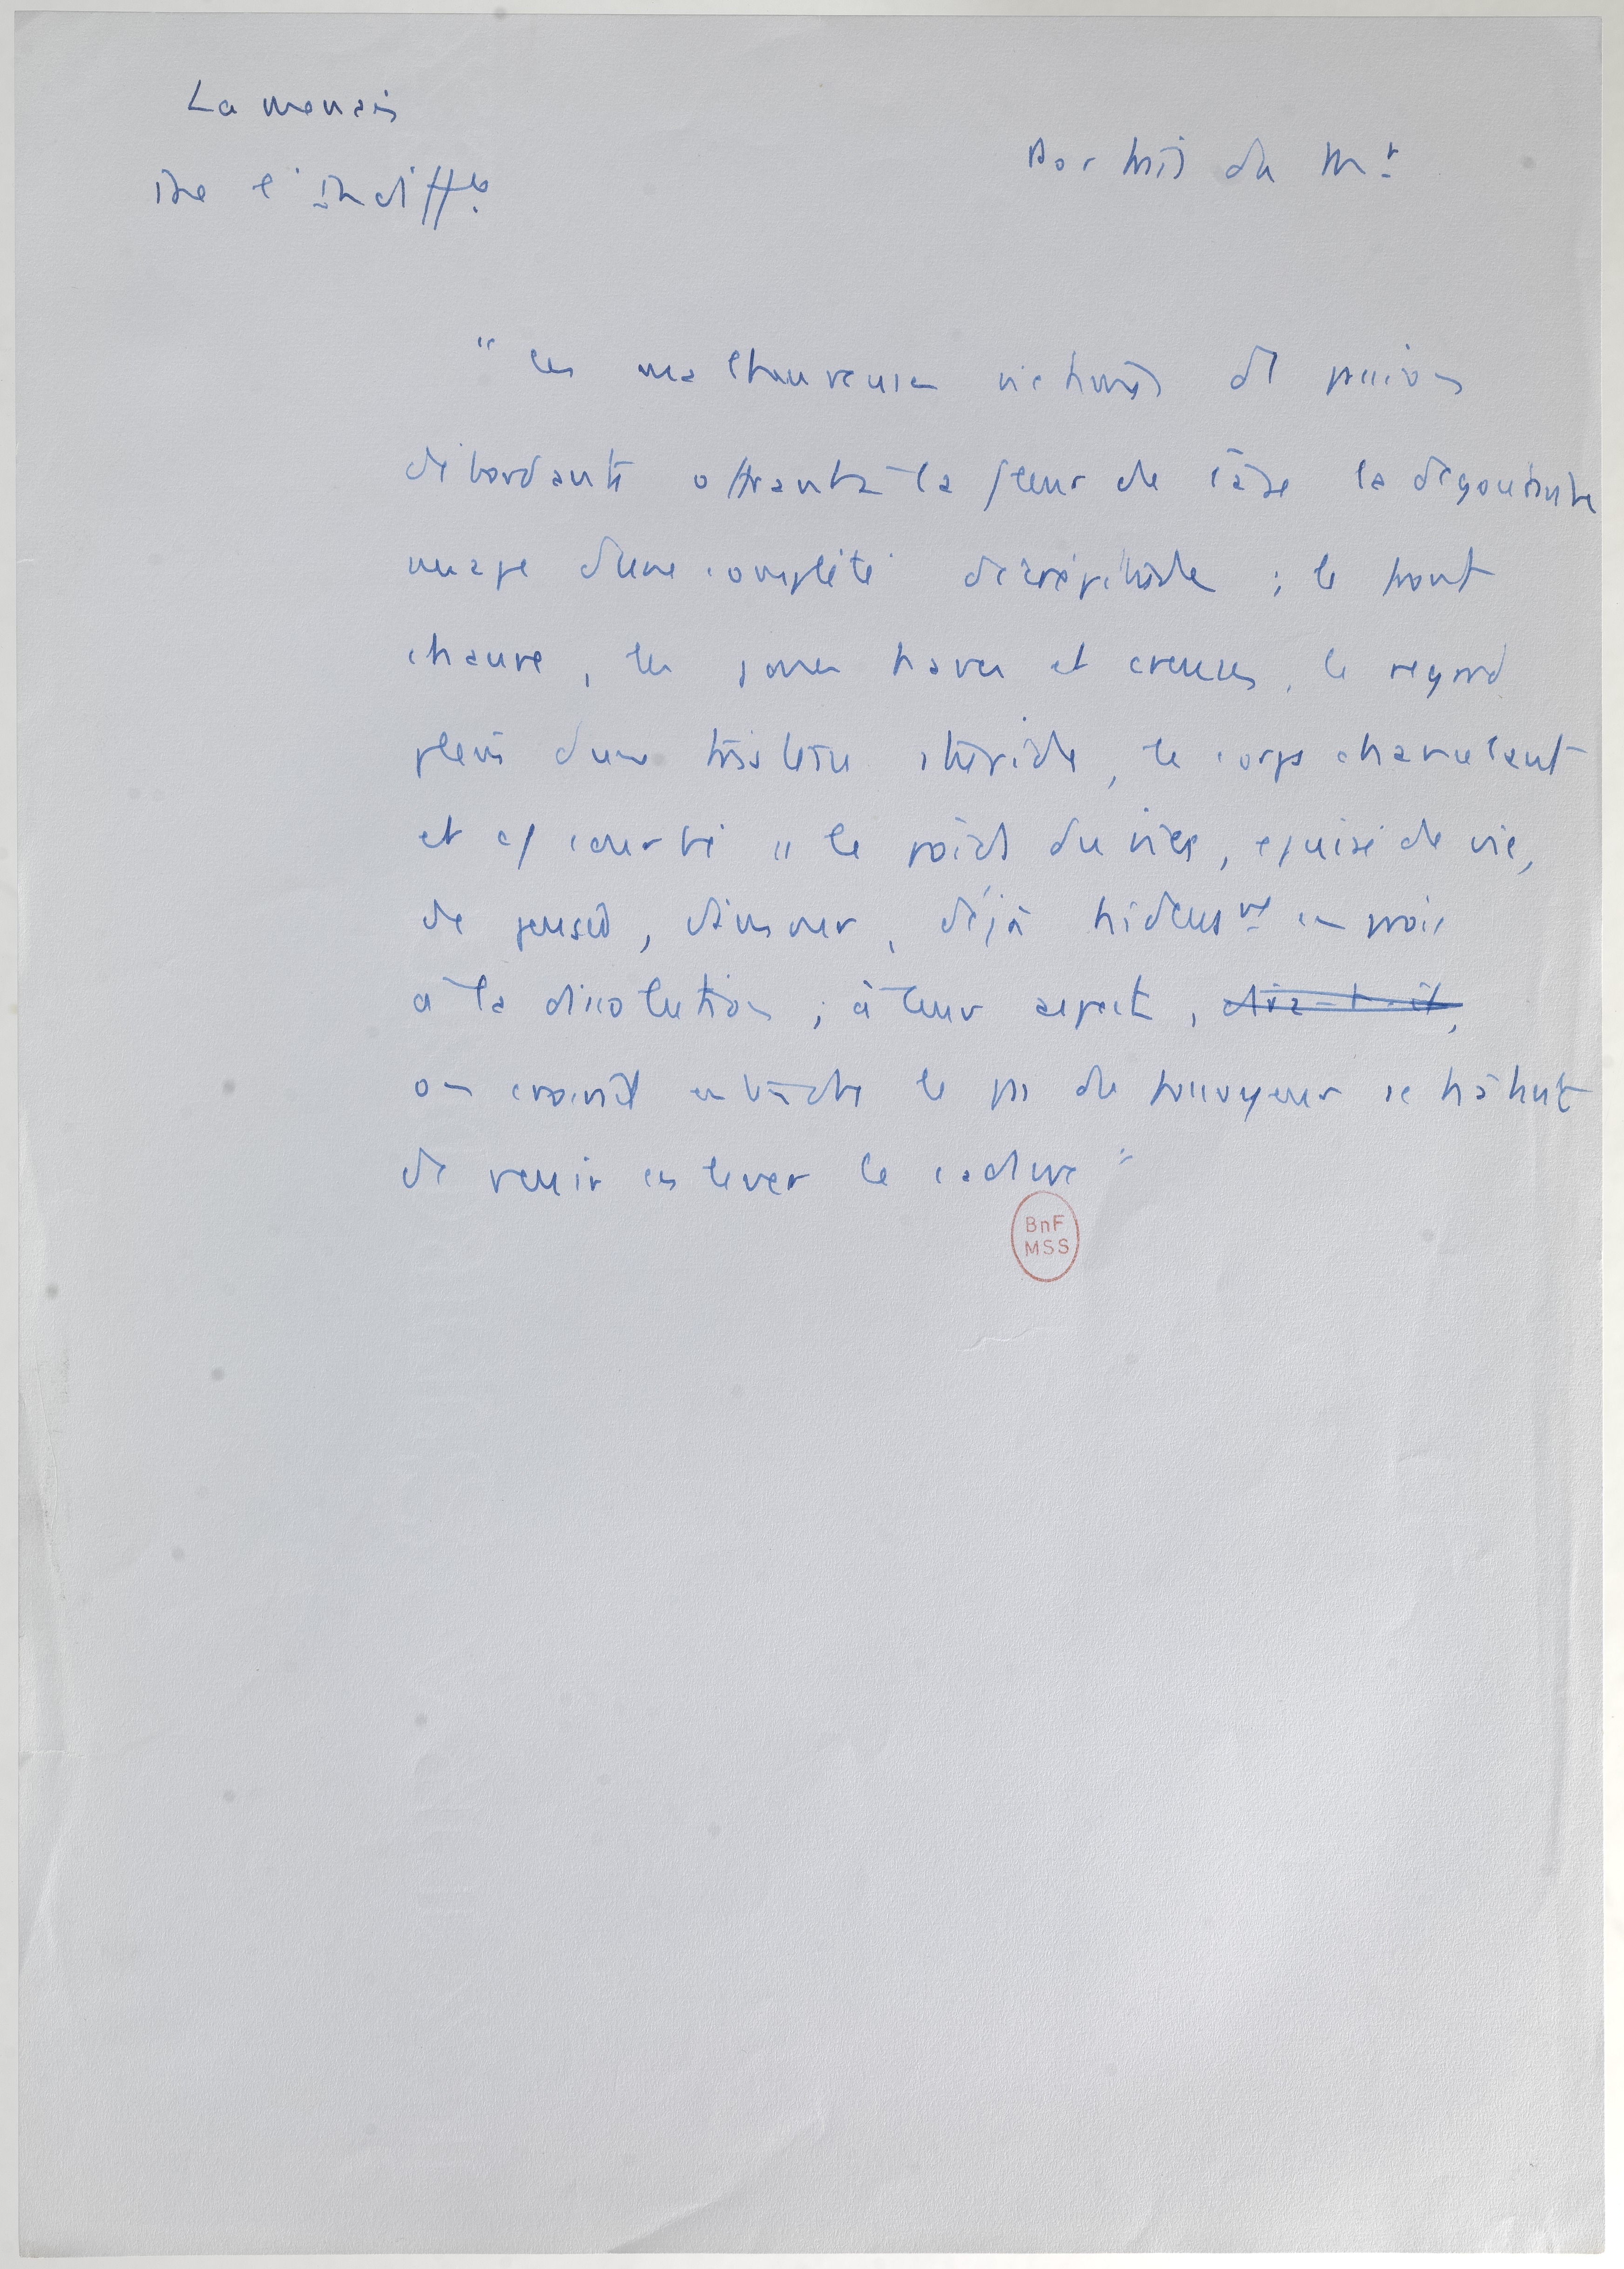 Lamennais
de l'indiffce.
Portrait du Mr
" les malheureuses victimes de passions
débordantes offrant à la fleur de l'âge la dégoutante
image d'une complète décrépitude ; le front
chauve, les joues haves et creuses, le regard
plein d'une tristesse stupide, le corps chancelant
et cō courbé ss le poids du vice, épuisé de vie,
de pensée, d'amour, déjà hideusmt en proie
à la dissolution ; à leur aspect,
on croirait entendre le pas du fossoyeur se hâtant
de venir enlever le cadavre "
BnF
MSS